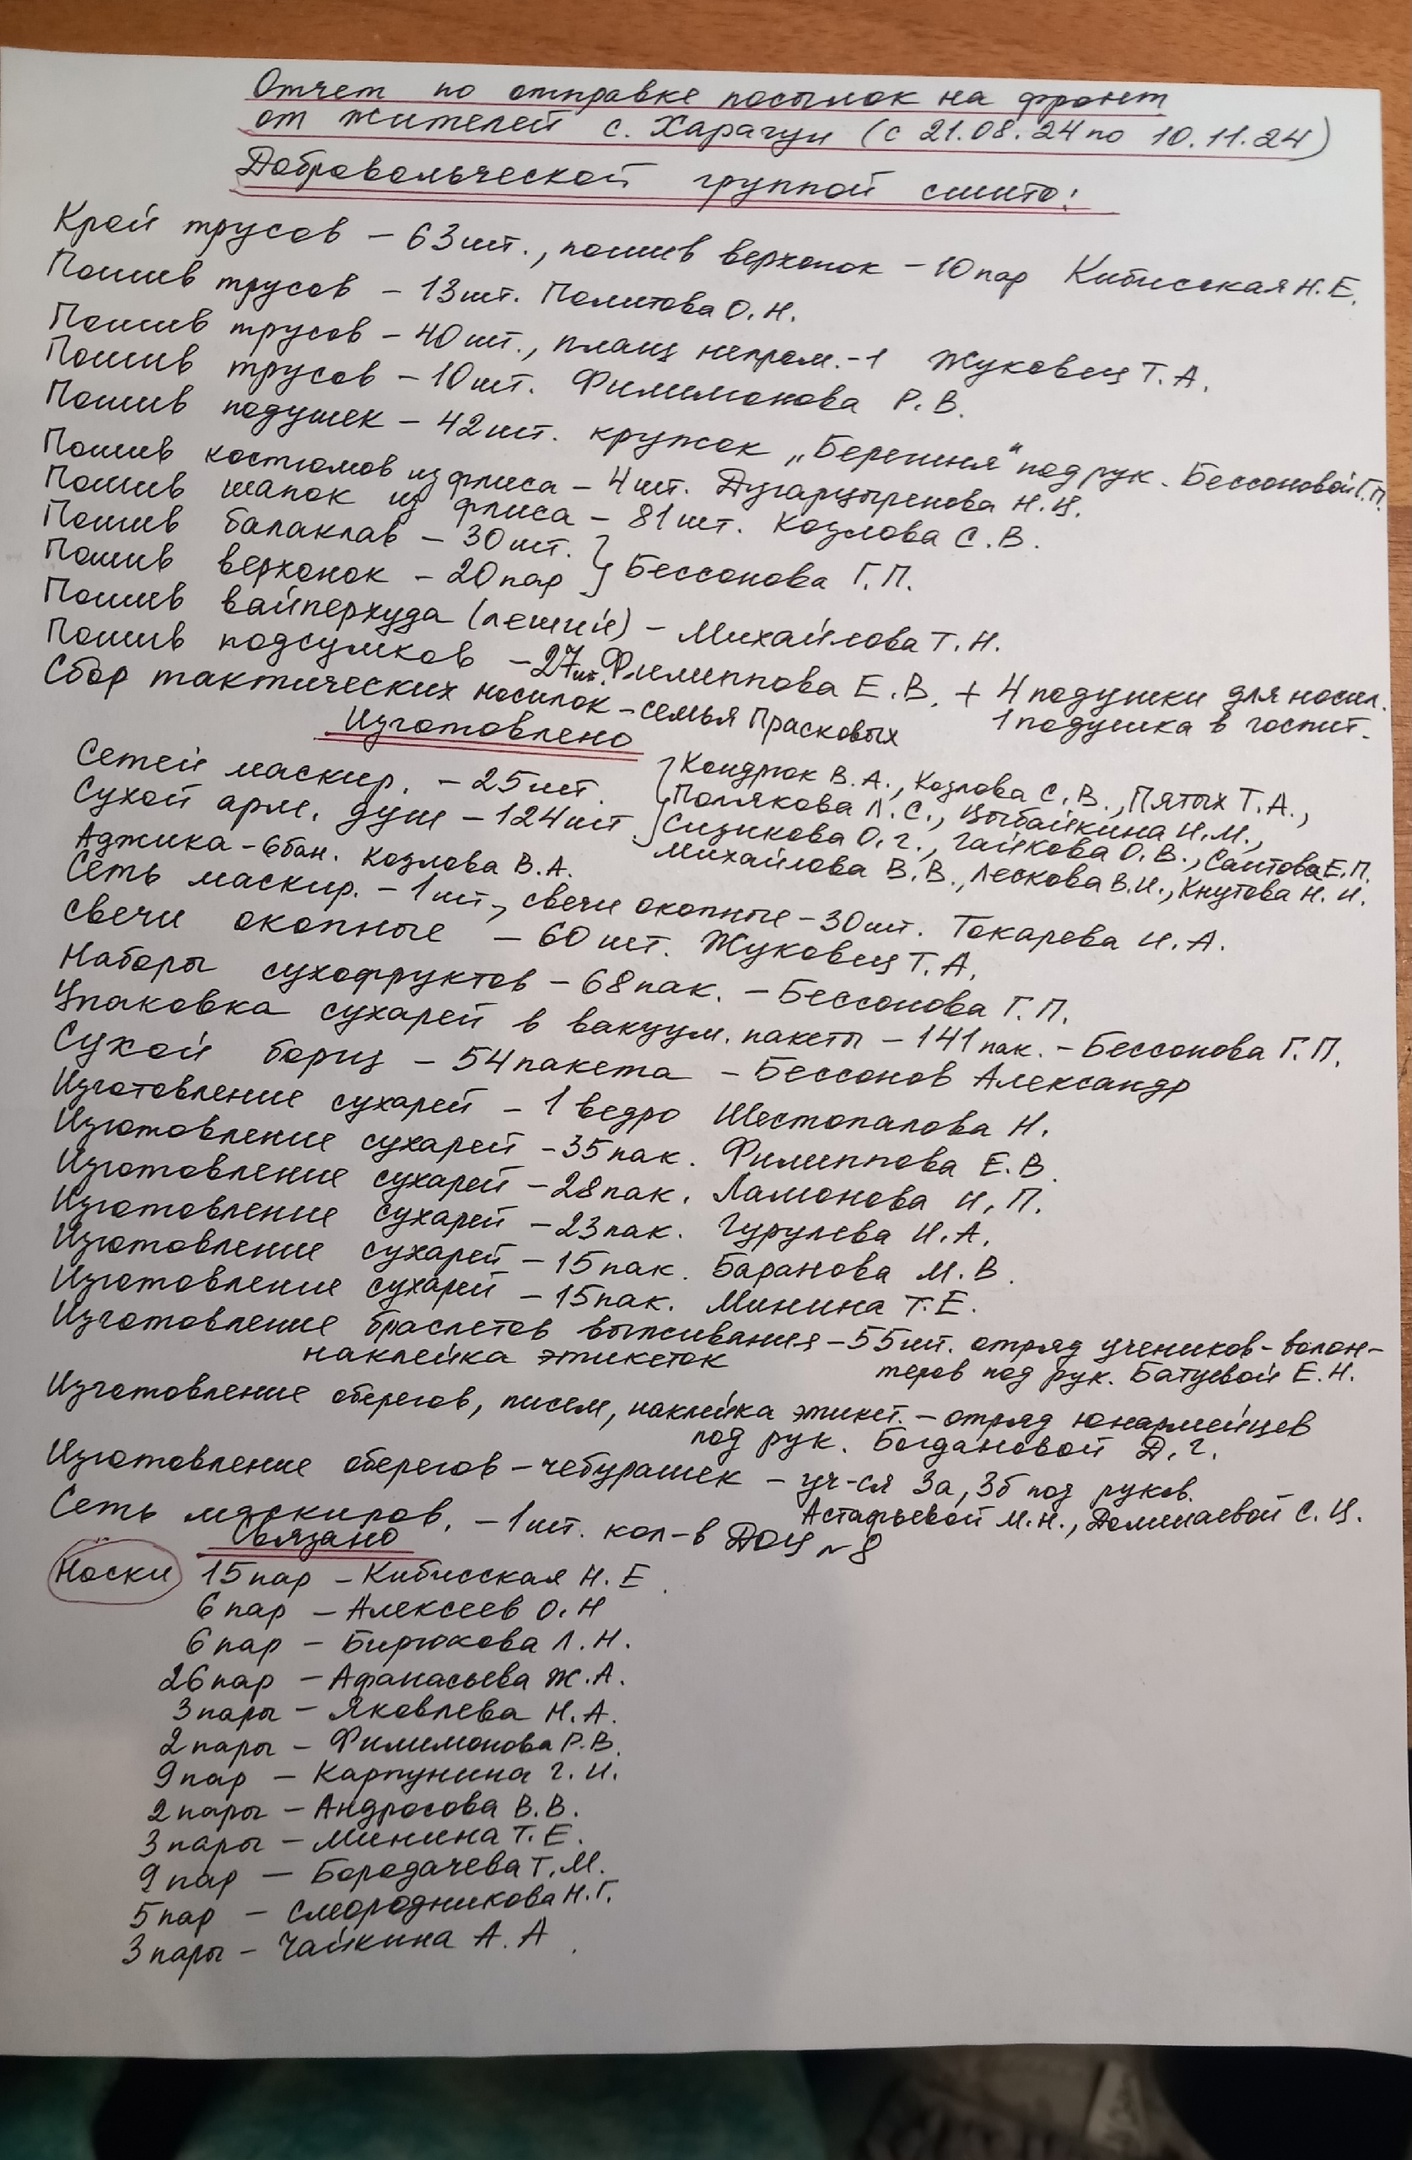 Отчет по отправке посылок на фронт
от жителей с. Харагун (с 21.08.24 по 10.11.24)
Добровольческой группой сшито:
Крой трусов – 63 шт., пошив верхонок – 10 пар Кибисская Н.Е.
Пошив трусов – 13 шт. Политова О.Н.
Пошив трусов – 40 шт., плащ непром. – 1 Жуковец Т.А.
Пошив трусов – 10 шт. Филимонова Р.В.
Пошив подушек – 42 шт. кружок „Берегиня" под рук. Бессоновой Г.П.
Пошив костюмов из флиса – 4 шт. Дугарцыренова Н.Ц.
Пошив шапок из флиса – 81 шт. Козлова С.В.
Пошив балаклав – 30 шт.
Пошив верхонок – 20 пар } Бессонова Г.П.
Пошив вайперхуда (леший) – Михайлова Т.Н.
Пошив подсумков – 27 шт. Филиппова Е.В. + 4 подушки для носил.
1 подушка в госпит.
Сбор тактических носилок – семья Прасковых
Изготовлено
Сетей маскир. – 25 шт.
Сухой арм. душ – 124 шт.
Кондрюк В.А., Козлова С.В., Пятых Т.А.,
Полякова Л.С., Цыбайкина И.М.,
Сизикова О.Г., Гайкова О.В., Саитова Е.П.
Михайлова В.В., Лескова В.И., Кнутова Н.И.
Аджика – 6 бан. Козлова В.А.
Сеть маскир. – 1 шт., свечи окопные – 30 шт. Токарева И.А.
Свечи окопные – 60 шт. Жуковец Т.А.
Наборы сухофруктов – 68 пак. – Бессонова Г.П.
Упаковка сухарей в вакуум. пакеты – 141 пак. – Бессонова Г.П.
Сухой борщ – 54 пакета – Бессонов Александр
Изготовление сухарей – 1 ведро Шестопалова Н.
Изготовление сухарей – 35 пак. Филиппова Е.В.
Изготовление сухарей – 28 пак. Ламонова И.П.
Изготовление сухарей – 23 пак. Гурулева И.А.
Изготовление сухарей – 15 пак. Баранова М.В.
Изготовление сухарей – 15 пак. Минина Т.Е.
Изготовление браслетов выживания – 55 шт. отряд учеников-волон-
наклейка этикеток теров под рук. Батуевой Е.Н.
Изготовление оберегов, писем, наклейка этикет. – отряд юнармейцев
под рук. Богдановой Д.Г.
Изготовление оберегов-чебурашек – уч-ся 3а, 3б под руков.
Астафьевой М.Н., Доминаевой С.Ц.
Сеть маскиров. – 1 шт. кол-в ДОЦ №8
Связано
Носки 15 пар – Кибисская Н.Е.
6 пар – Алексеев О.Н
6 пар – Бирюкова Л.Н.
26 пар – Афанасьева Ж.А.
3 пары – Яковлева Н.А.
2 пары – Филимонова Р.В.
9 пар – Карпунина Г.И.
2 пары – Андросова В.В.
3 пары – Минина Т.Е.
9 пар – Бородачева Т.М.
5 пар – Смородникова Н.Г.
3 пары – Чайкина А.А